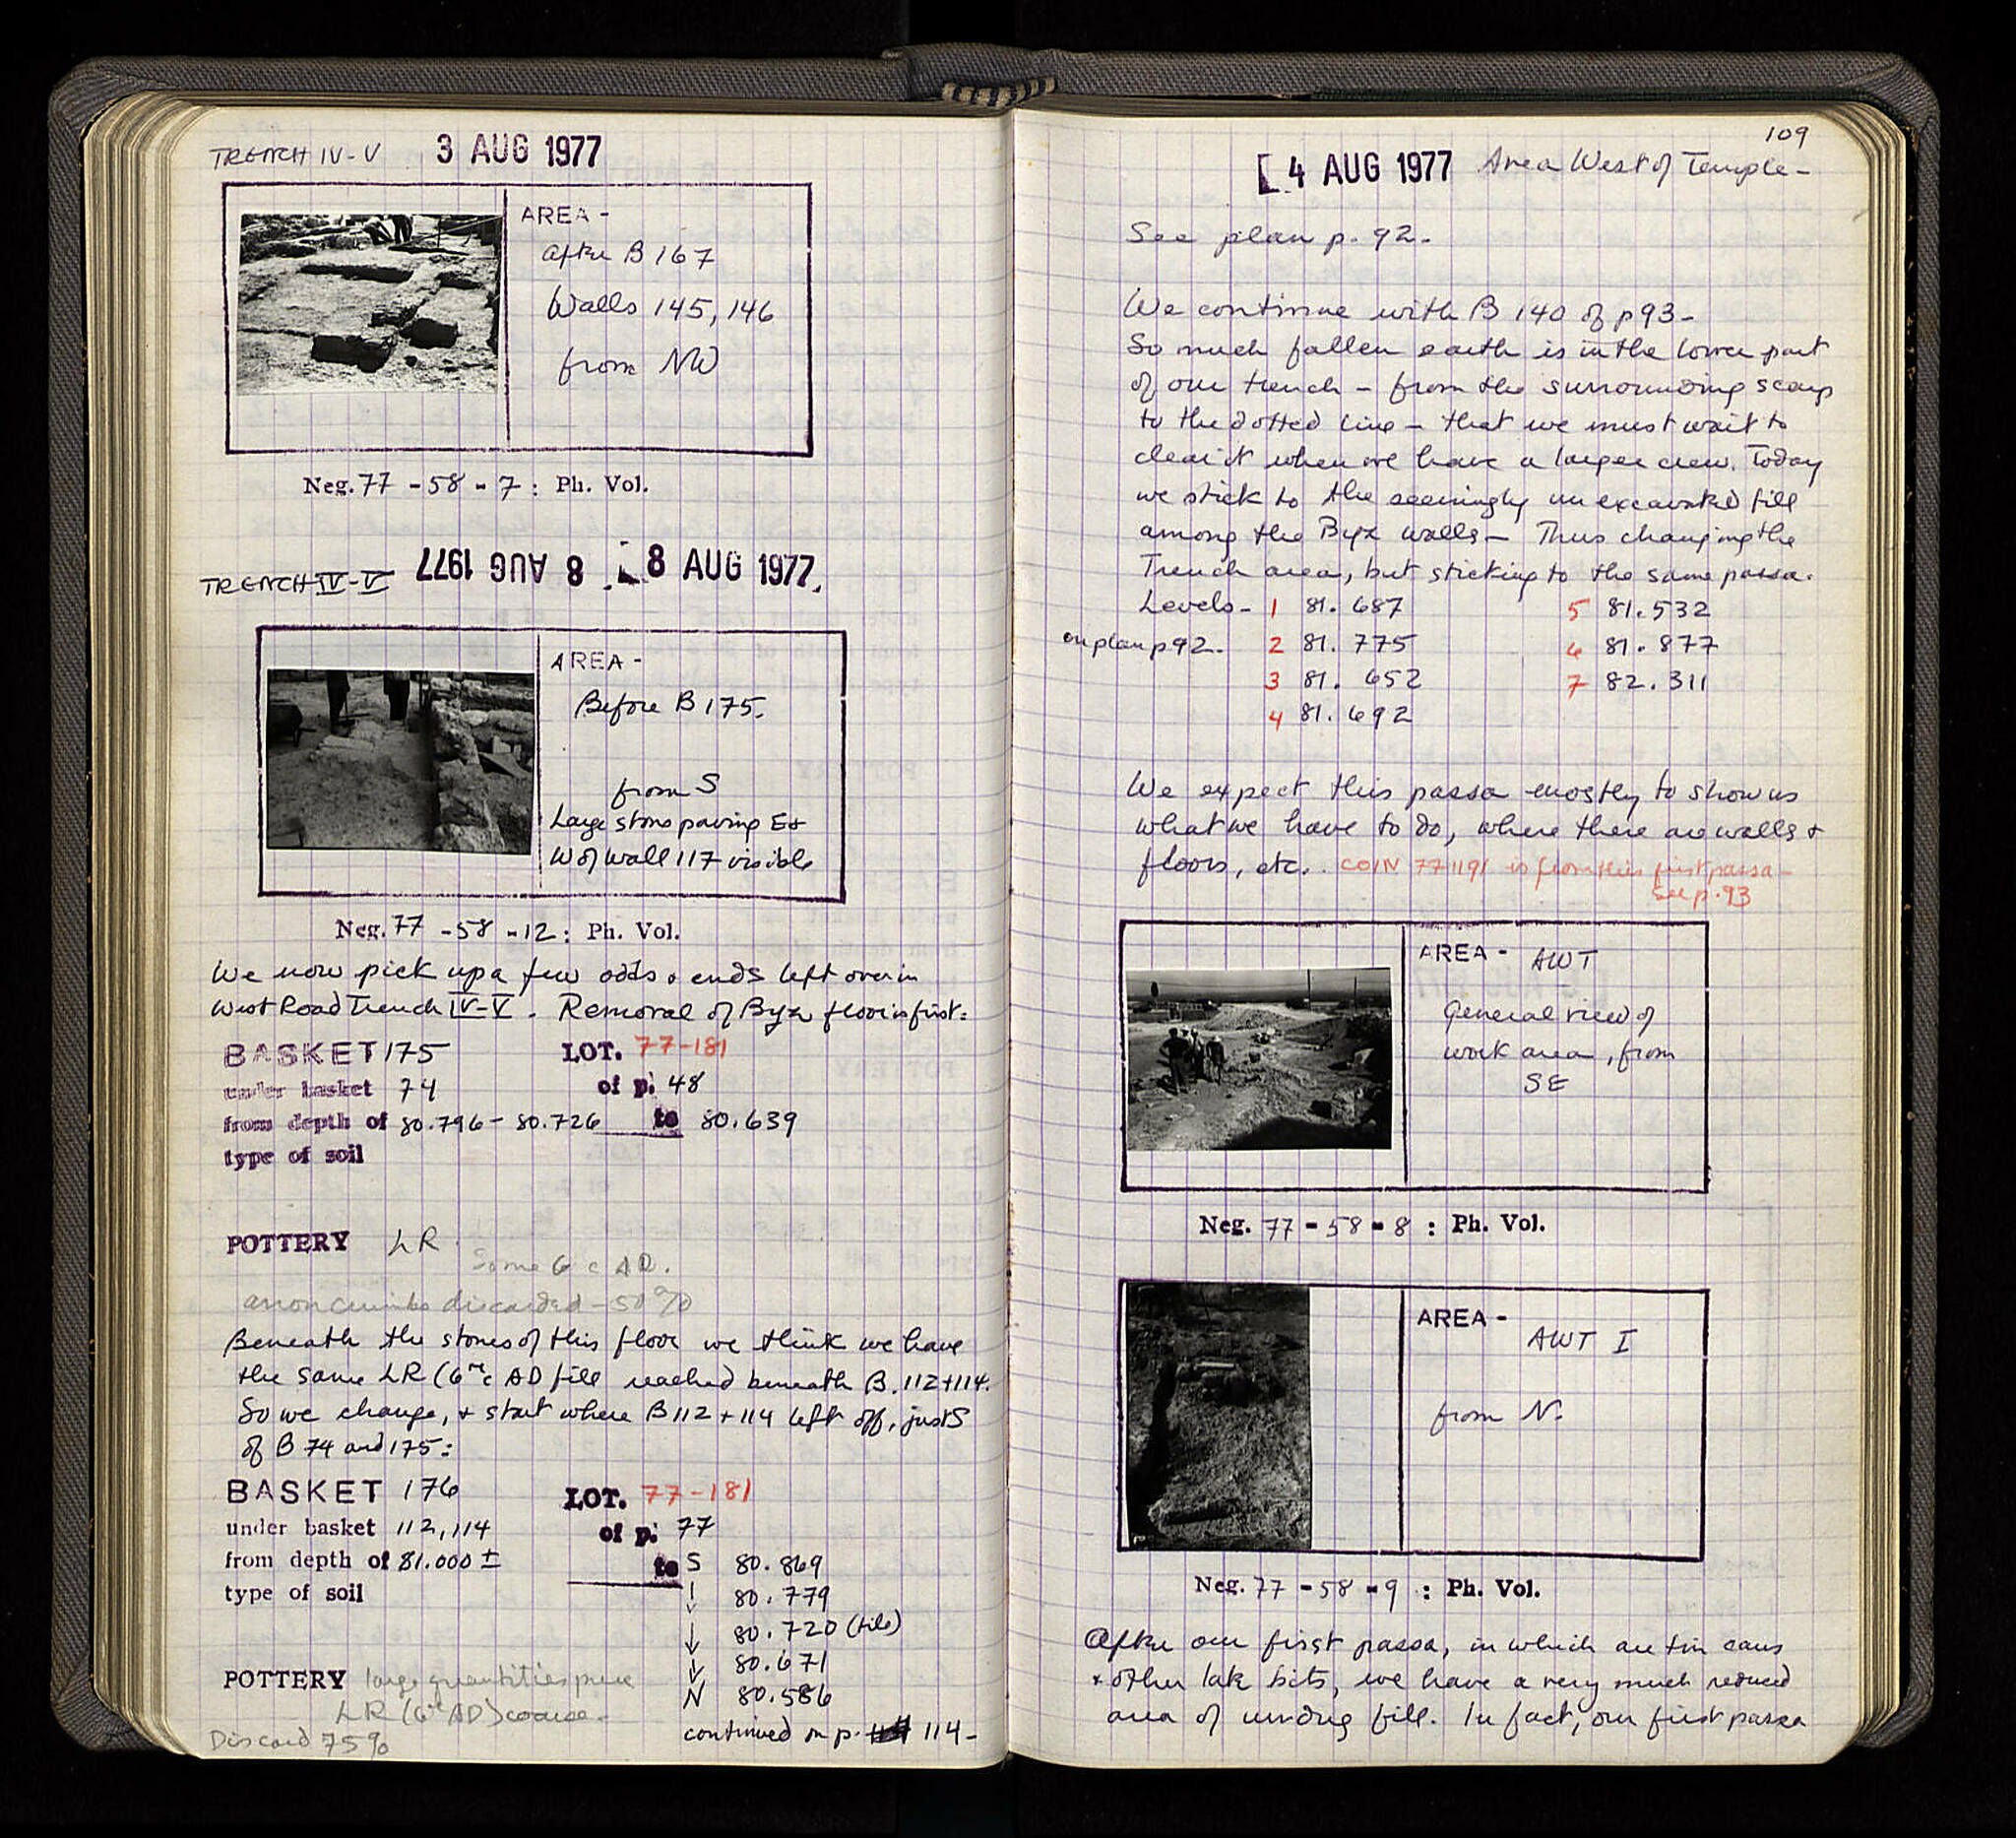 TRENCH IV-V 3 AUG 1977
AREA -
after B 167
Walls 145, 146
from NW
Neg. 77 - 58 - 7 : Ph. Vol.
TRENCH IV-V 8 AUG 1977 8 AUG 1977
AREA -
Before B 175.
from S
Large stone paving E &
W of wall 117 visible
Neg. 77 - 58 - 12 : Ph. Vol.
We now pick up a few odds & ends left over in
West Road Trench IV-V. Removal of Byz floor is first:
BASKET 175 LOT. 77-181
under basket 74 of p. 48
from depth of 80.796 - 80.726 to 80.639
type of soil
POTTERY LR
Some 6 c AD.
discarded - 50%
Beneath the stones of this floor we think we have
the same LR (6th c AD fill reached beneath B. 112 + 114.
So we change, + start where B 112 + 114 left off, just S
of B 74 and 175:
BASKET 176 LOT. 77-181
under basket 112, 114 of p. 77
from depth of 81.000 ± to S 80.869
type of soil 80.779
80.720 (tile)
80.671
N 80.586
POTTERY large quantities pure
LR (6th AD) coarse.
Discard 75%
continued on p. 114 -
109
4 AUG 1977 Area West of Temple -
See plan p. 92.
We continue with B 140 of p 93 -
So much fallen earth is in the lower part
of our trench - from the surrounding scarp
to the dotted line - that we must wait to
clear it when we have a larger crew. Today
we stick to the seemingly unexcavated fill
among the Byz walls - Thus changing the
Trench area, but sticking to the same passa.
Levels - 1 81.687 5 81.532
on plan p 92. 2 81.775 6 81.877
3 81.652 7 82.311
4 81.692
We expect this passa mostly to show us
what we have to do, where there are walls +
floors, etc. COIN 77 1191 is from this first passa -
See p. 93
AREA - AWT
General view of
work area, from
SE
Neg. 77 - 58 - 8 : Ph. Vol.
AREA -
AWT I
from N.
Neg. 77 - 58 - 9 : Ph. Vol.
After our first passa, in which are tin cans
+ other late bits, we have a very much reduced
area of undug fill. In fact, our first passa